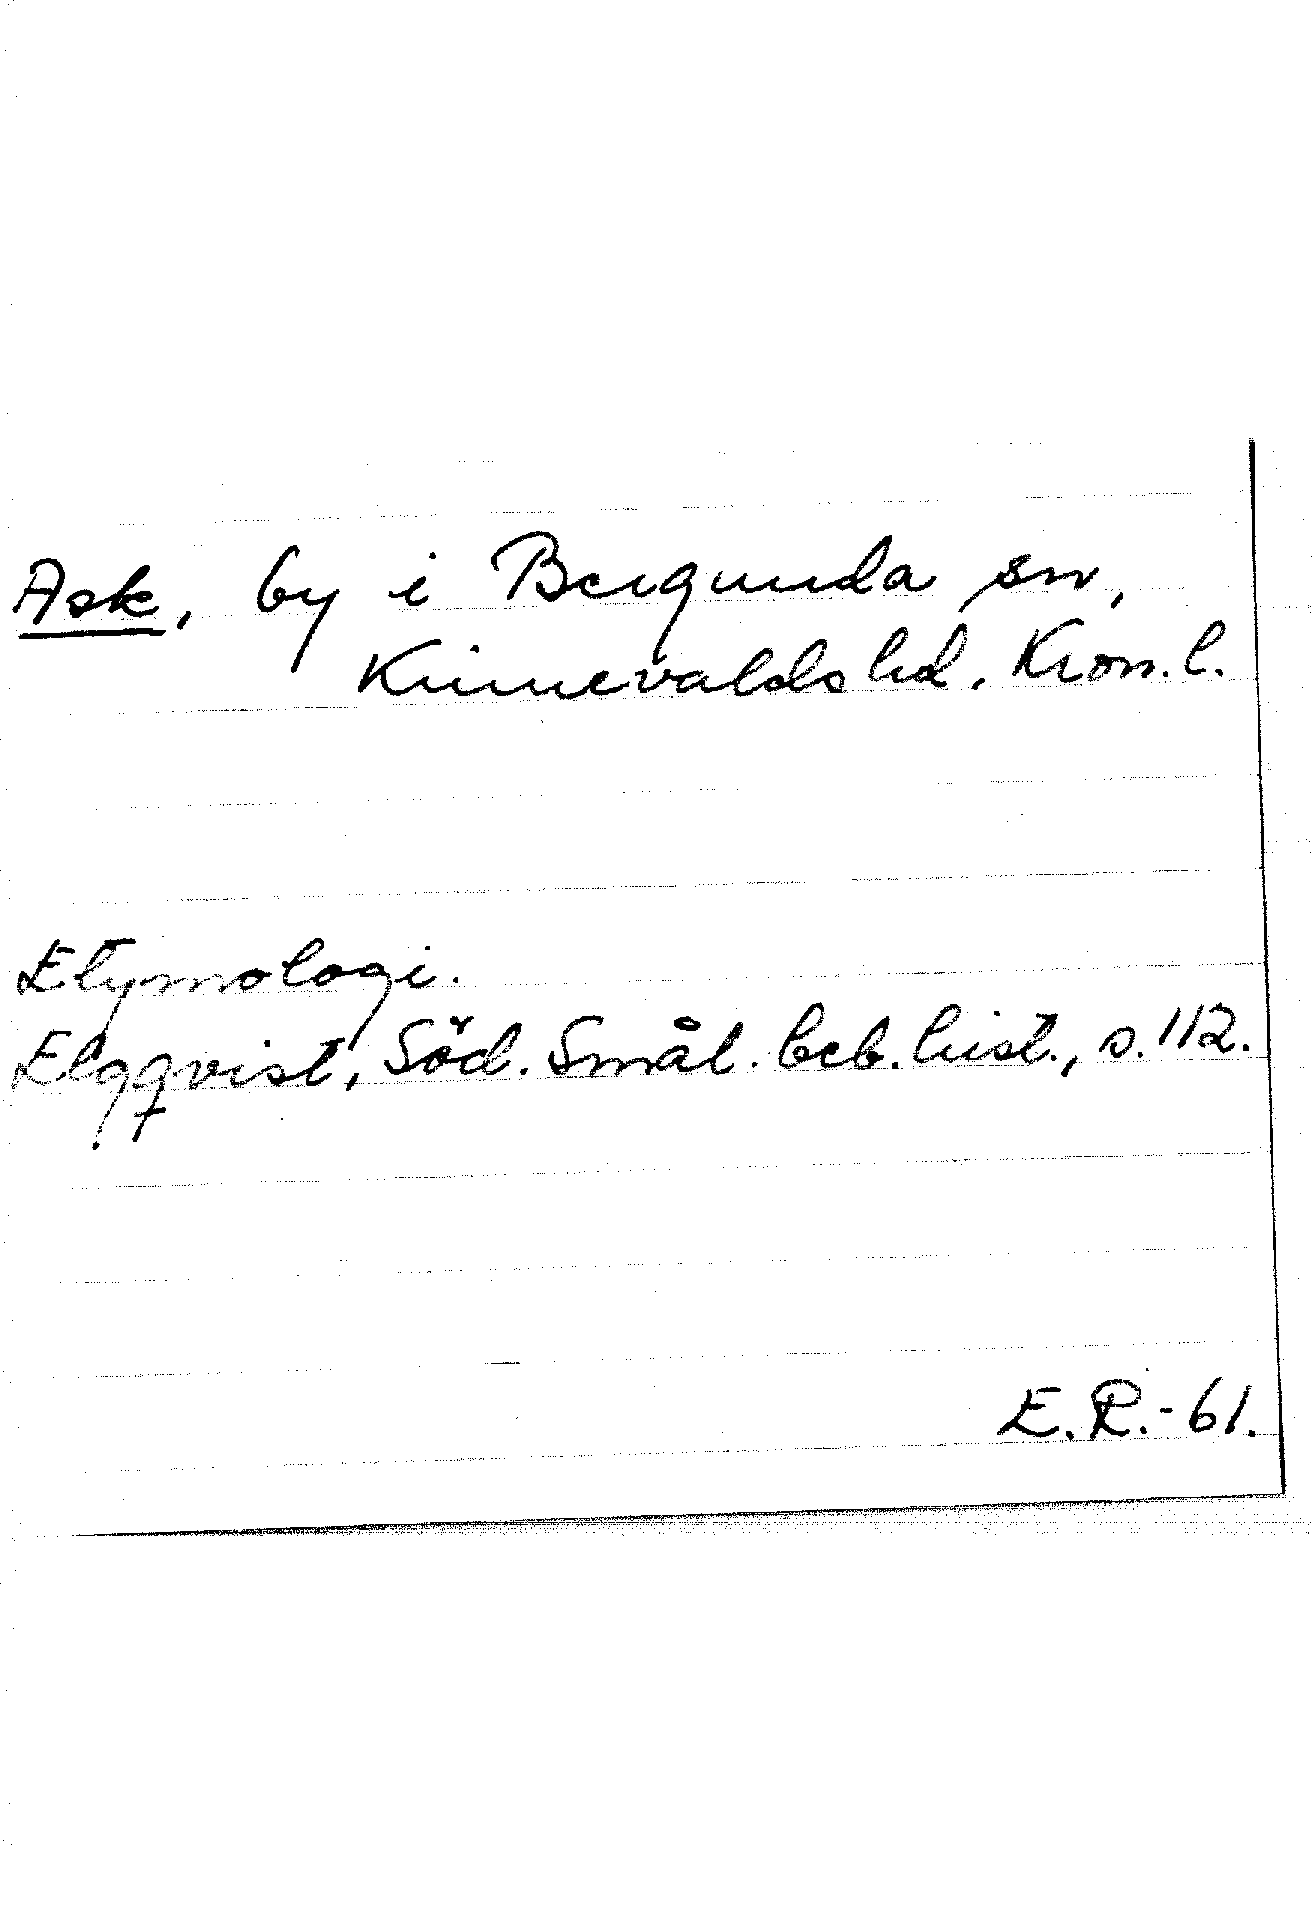 Ask, by i Bergunda sn,
Kinnevalds hd. Kron. l.
Etymologi.
Elgqvist, Söd. Smål. beb. hist., s. 112.
E. R. - 61.